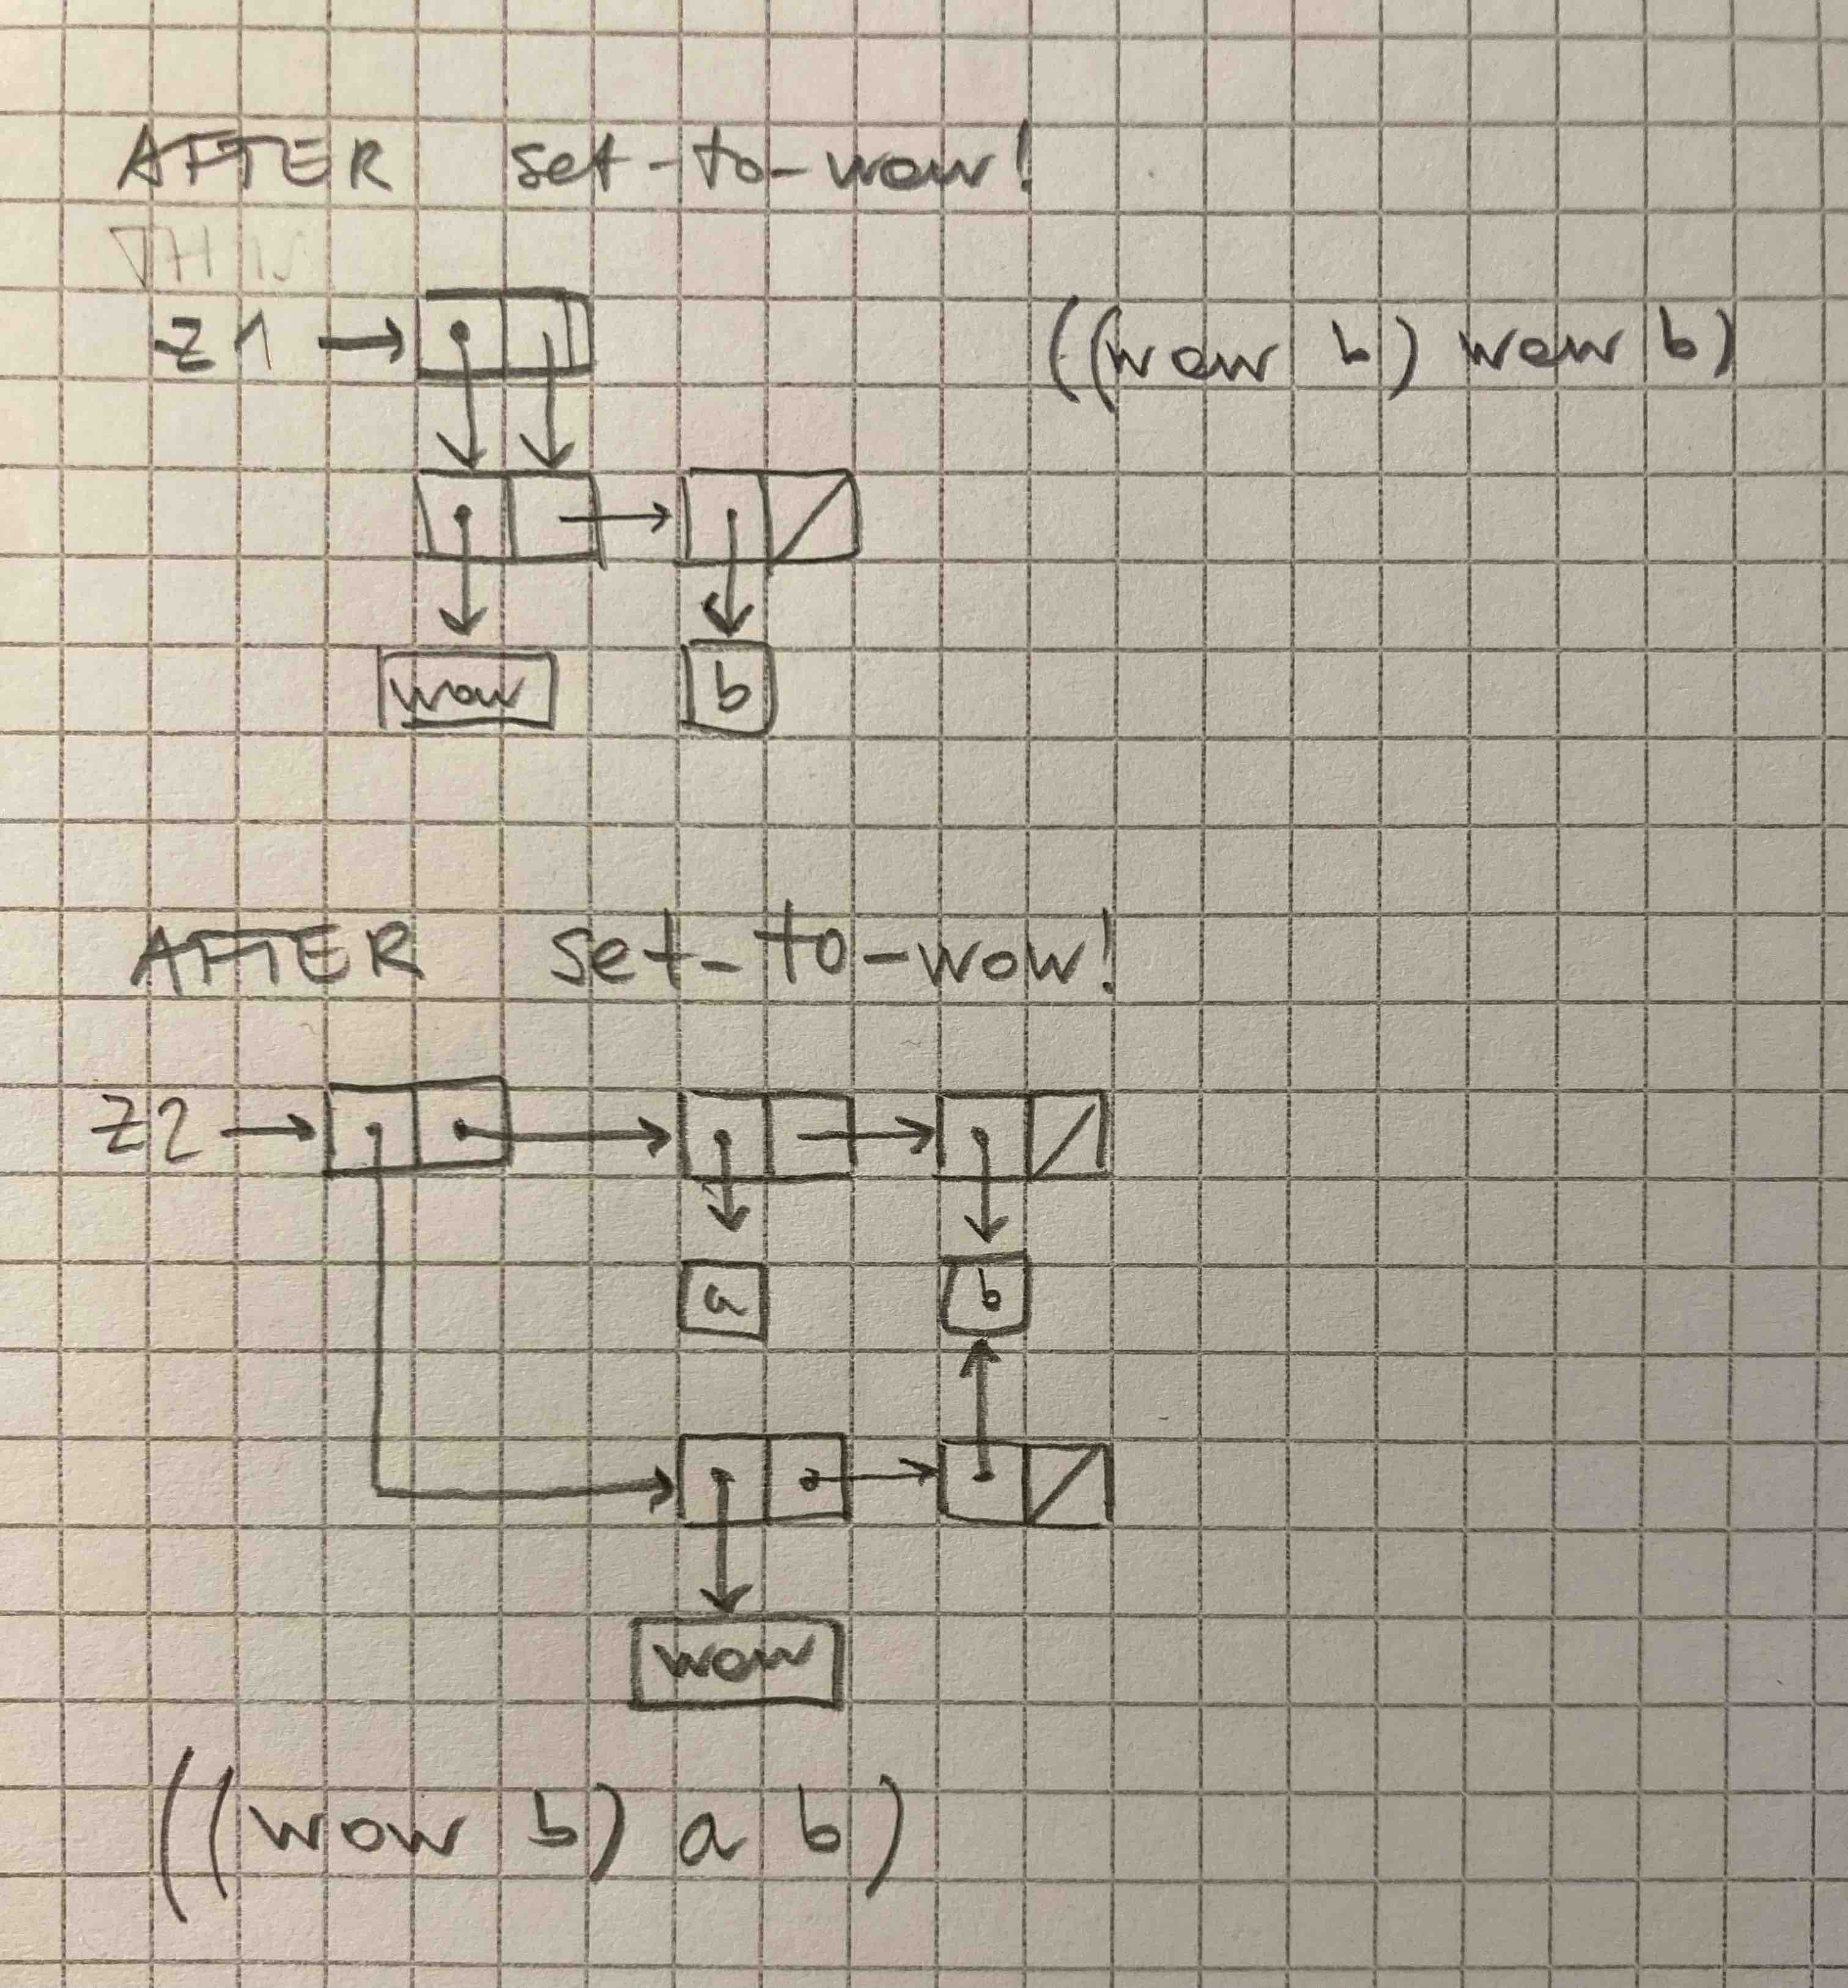 AFTER set-to-wow!
THIS
z1 ((wow b) wow b)
wow b
AFTER set-to-wow!
z2
a b
wow
((wow b) a b)